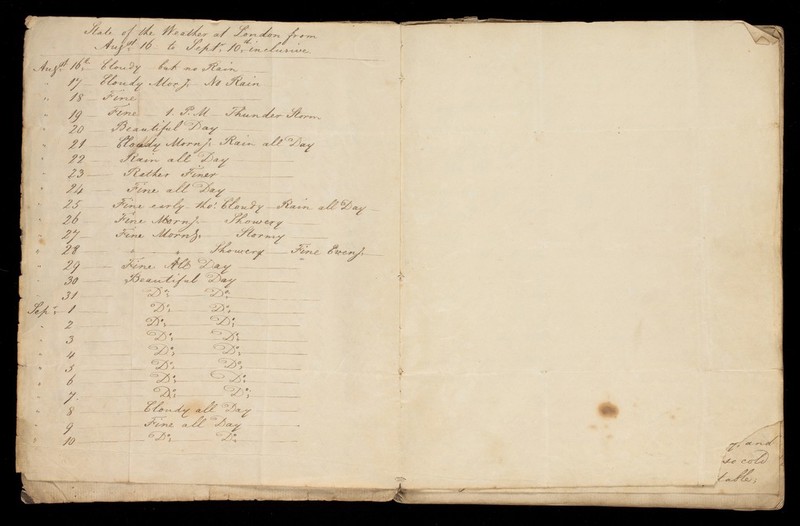 State of the Weather at London from
Augst 16 to Sept. 10th inclusive
Augst 16th Cloudy but no Rain
" 17 Cloudy Morg. No Rain
" 18 Fine
" 19 Fine 1. P.M Thunder Storm
" 20 Beautiful Day
" 21 Cloudy Morng. Rain all Day
" 22 Rain all Day
" 23 Rather Finer
" 24 Fine all Day
" 25 Fine early tho' Cloudy Rain all Day
" 26 Fine Morng. Showery
" 27 Fine Morng. Stormy
" 28 " Showery Fine Eveng.
" 29 Fine All Day
" 30 Beautiful Day
" 31 Do. Do.
Sept. 1 Do. Do.
" 2 Do. Do.
" 3 Do. Do.
" 4 Do. Do.
" 5 Do. Do.
" 6 Do. Do.
" 7. Do. Do.
" 8 Cloudy all Day
" 9 Fine all Day
" 10 Do. Do.
and
so cold